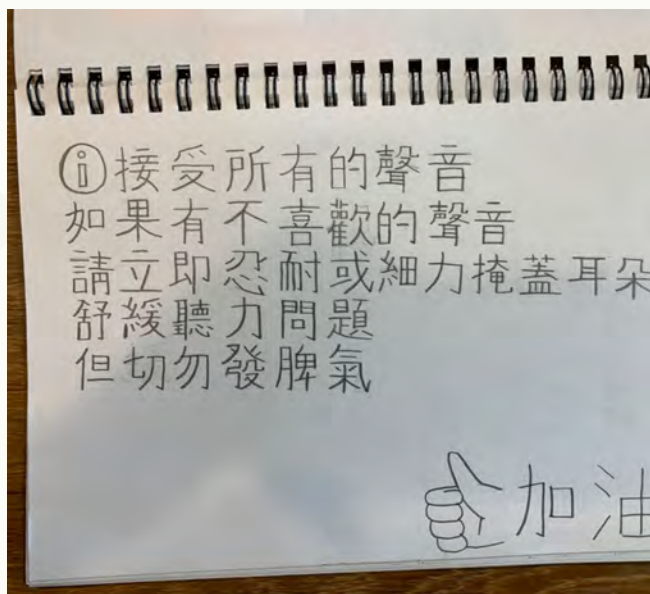 ⓘ接受所有的聲音
如果有不喜歡的聲音
請立即忍耐或細力掩蓋耳朵
舒緩聽力問題
但切勿發脾氣
加油